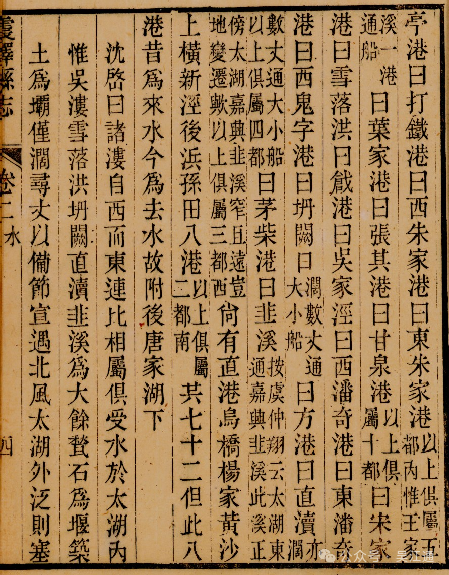 亭港曰打鐵港曰西朱家港曰東朱家港以上俱屬五都內惟王家
溪一港通船曰葉家港曰張其港曰甘泉港以上俱屬十都曰宋家
港曰雪落洪曰戧港曰吳家涇曰西潘奇港曰東潘奇
港曰西鬼字港曰坍闕曰濶數丈通大小船曰方港曰直瀆亦濶
數丈通大小船以上俱屬四都曰茅柴港曰韭溪按虞仲翔云太湖東通嘉興韭溪此溪正
傍太湖嘉興韭溪窄且遠豈地變遷歟以上俱屬三都西尚有直港烏橋楊家黃沙
上橫新涇後浜孫田八港以上俱屬二都南共七十二但此八
港昔為來水今為去水故附後唐家湖下
沈啓曰諸漊自西而東連比相屬俱受水於太湖內
惟吳漊雪落洪坍闕直瀆韭溪為大餘甃石為堰築
土為壩僅濶尋丈以備節宣遇北風太湖外泛則塞
震澤縣志 卷二 水 四
公众号 · 吴江通